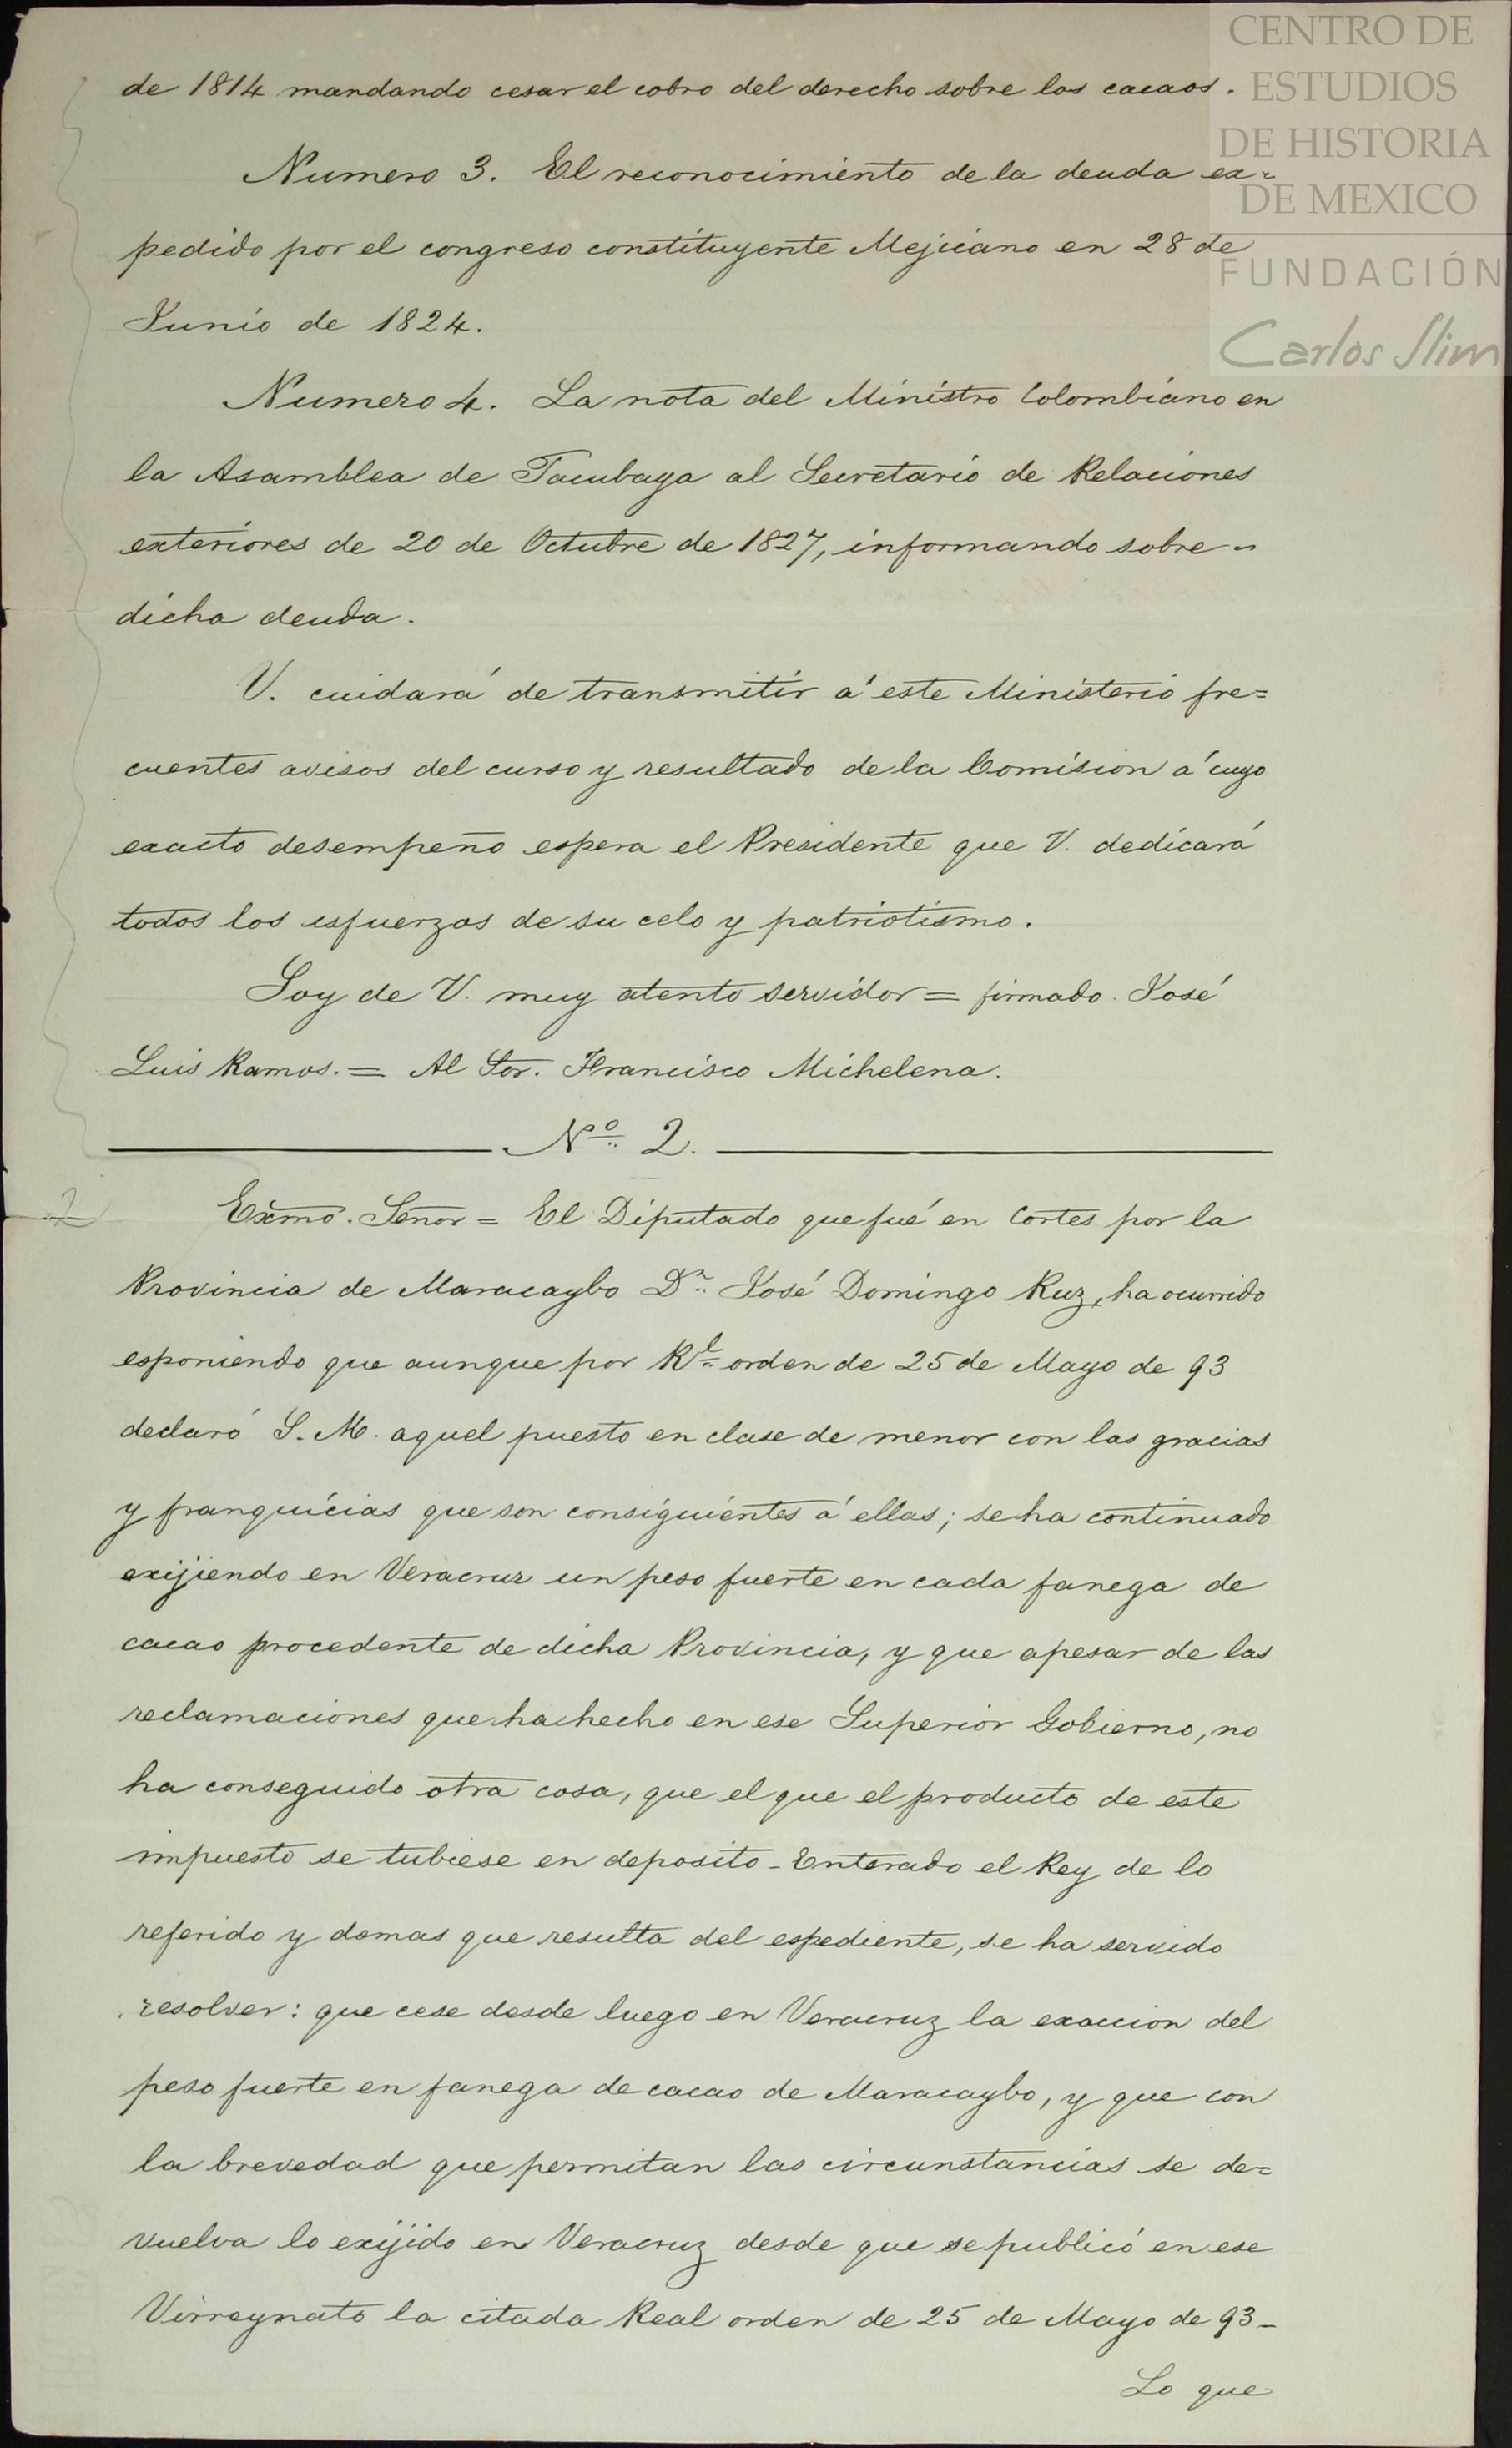 CENTRO DE
ESTUDIOS
DE HISTORIA
DE MEXICO
FUNDACIÓN
Carlos Slim
de 1814 mandando cesar el cobro del derecho sobre los cacaos.
Numero 3. El reconocimiento de la deuda ex=
pedido por el congreso constituyente Mejicano en 28 de
Junio de 1824.
Numero 4. La nota del Ministro Colombiano en
la Asamblea de Tacubaya al Secretario de Relaciones
exteriores de 20 de Octubre de 1827, informando sobre =
dicha deuda.
V. cuidará de transmitir á este Ministerio fre=
cuentes avisos del curso y resultado de la Comision á cuyo
exacto desempeño espera el Presidente que V. dedicará
todos los esfuerzos de su celo y patriotismo.
Soy de V. muy atento servidor = firmado. José
Luis Ramos. = Al Sor. Francisco Michelena.
Nº 2.
2
Exmo. Señor = El Diputado que fué en Cortes por la
Provincia de Maracaybo Dn José Domingo Ruz, ha ocurrido
esponiendo que aunque por Rl orden de 25 de Mayo de 93
declaró S. M. aquel puesto en clase de menor con las gracias
y franquicias que son consiguientes á ellas; se ha continuado
exijiendo en Veracruz un peso fuerte en cada fanega de
cacao procedente de dicha Provincia, y que apesar de las
reclamaciones que ha hecho en ese Superior Gobierno, no
ha conseguido otra cosa, que el que el producto de este
impuesto se tubiese en deposito - Enterado el Rey de lo
referido y demas que resulta del espediente, se ha servido
resolver: que cese desde luego en Veracruz la exaccion del
peso fuerte en fanega de cacao de Maracaybo, y que con
la brevedad que permitan las circunstancias se de=
vuelva lo exijido en Veracruz desde que se publicó en ese
Virreynato la citada Real orden de 25 de Mayo de 93 -
Lo que